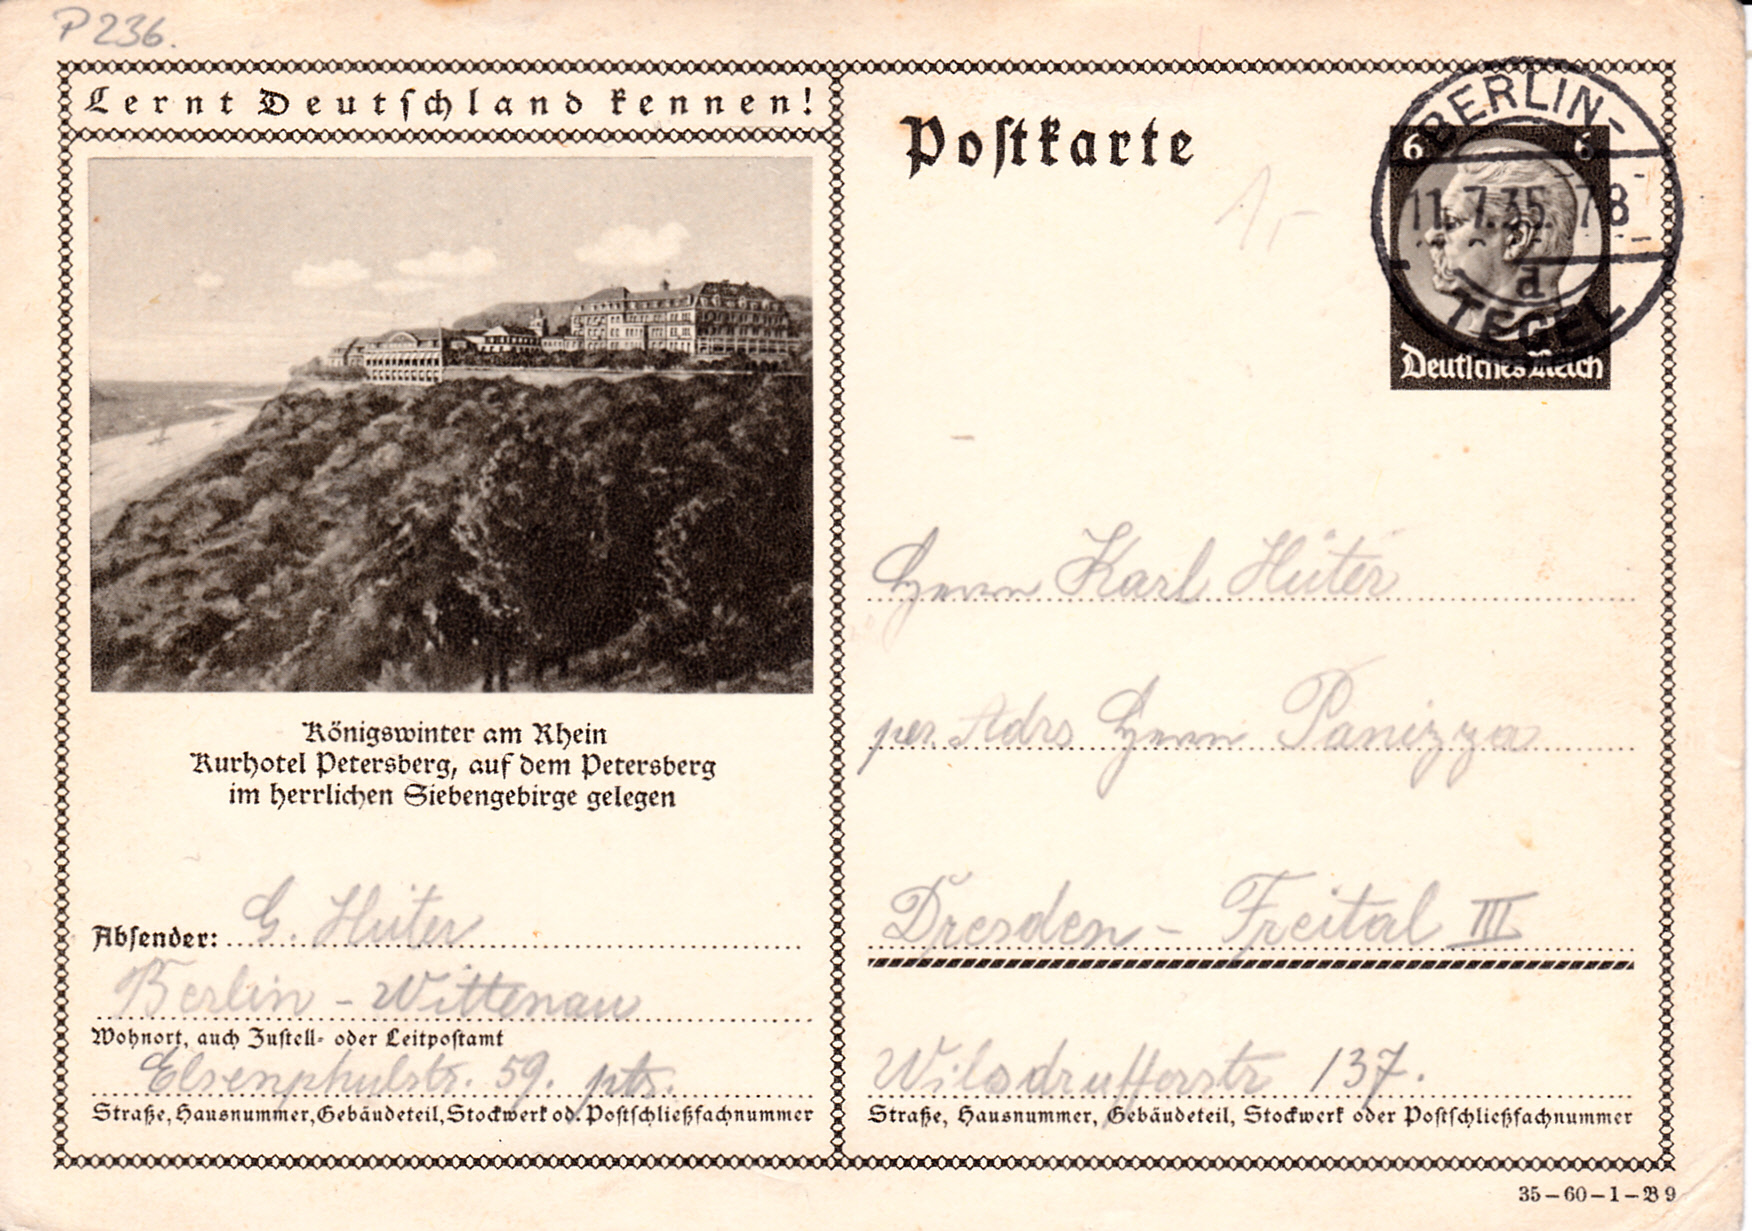 P 236.
Lernt Deutschland kennen!
Postkarte
6 6
BERLIN-
11.7.35. 7-8
d
TEGEL
Deutsches Reich
Königswinter am Rhein
Kurhotel Petersberg, auf dem Petersberg
im herrlichen Siebengebirge gelegen
Absender: G. Hüter
Berlin - Wittenau
Wohnort, auch Zustell- oder Leitpostamt
Elsenphulstr. 59. ptr.
Straße, Hausnummer, Gebäudeteil, Stockwerk od. Postschließfachnummer
Herrn Karl Hüter
per. Adrs Herrn Panizza
Dresden - Freital III
Wilsdrufferstr 137.
Straße, Hausnummer, Gebäudeteil, Stockwerk oder Postschließfachnummer
35-60-1-B 9